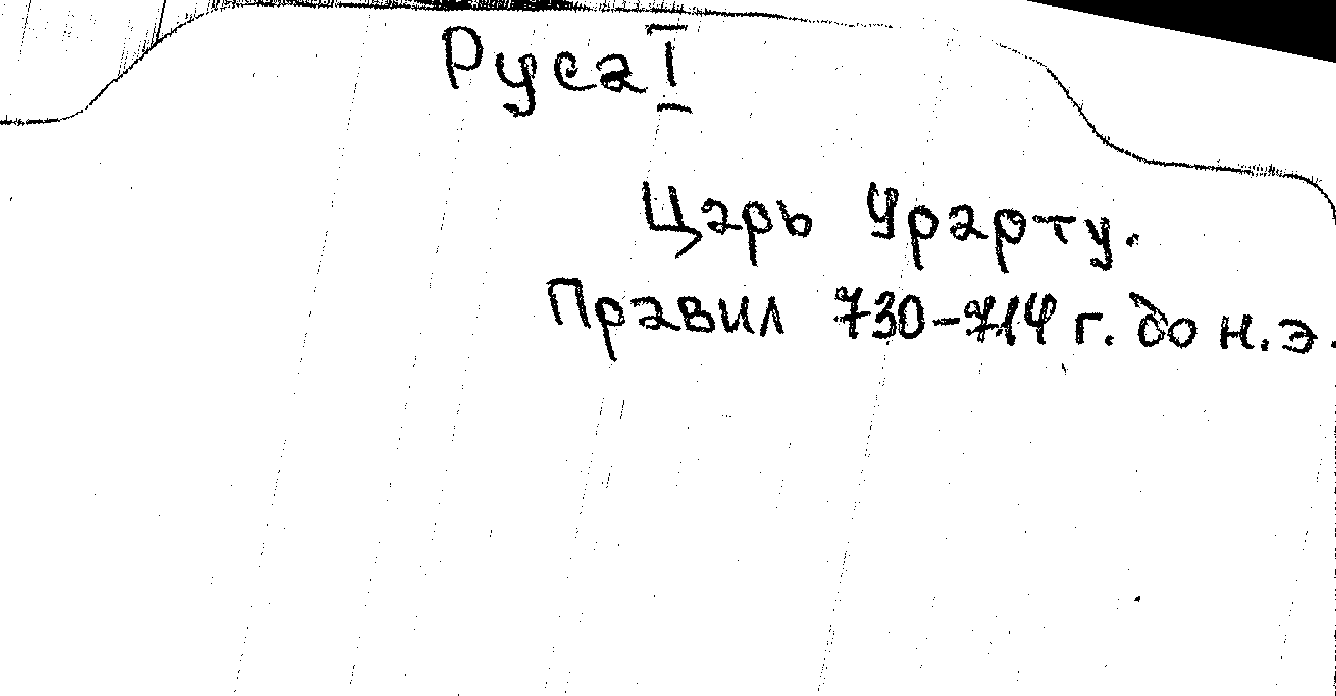 Руса I
Царь Урарту.
Правил 730-714 г. до н.э.